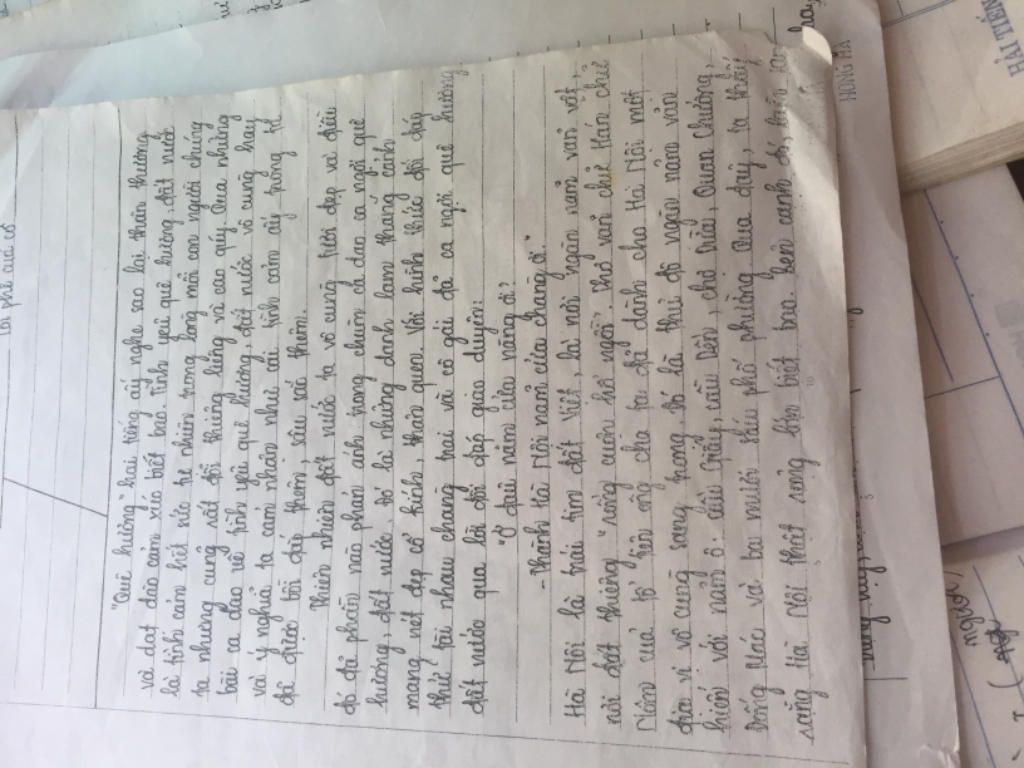 Lời phê của cô
"Quê hương" hai tiếng ấy nghe sao lại thân thương
và dạt dào cảm xúc biết bao. Tình yêu quê hương, đất nước
là tình cảm hết sức tự nhiên trong lòng mỗi con người chúng
ta nhưng cũng rất đỗi thiêng liêng và cao quý. Qua những
bài ca dao về tình yêu quê hương, đất nước vô cùng hay
và ý nghĩa ta cảm nhận như cái tình cảm ấy trong ta
đã được bồi đắp thêm, sâu sắc thêm.
Thiên nhiên đất nước ta vô cùng tươi đẹp và điều
đó đã phần nào phản ánh trong chùm ca dao ca ngợi quê
hương, đất nước, đó là những danh lam thắng cảnh
mang nét đẹp cổ kính, thân quen. Với hình thức đối đáp
thức tôi nhau chàng trai và cô gái đã ca ngợi quê hương,
đất nước qua lời đối đáp giao duyên:
"Ở đâu năm cửa nàng ơi?
- Thành Hà Nội năm cửa chàng ơi".
Hà Nội là trái tim đất Việt, là nơi ngàn năm văn vật,
nơi đất thiêng "rồng cuộn hổ ngồi". Thơ văn chữ Hán chữ
Nôm của tổ tiên ông cha ta đã dành cho Hà Nội một
địa vị vô cùng sang trọng, đó là thủ đô ngàn năm văn
hiến với năm ô: Cầu Giấy, cầu Dền, chợ Dừa, Quan Chưởng,
Đống Mác và ba mươi sáu phố phường. Qua đây, ta thấy
rằng Hà Nội thật rộng lớn biết bao. Bên cạnh đó,
HỒNG HÀ
HẢI TIẾN
người